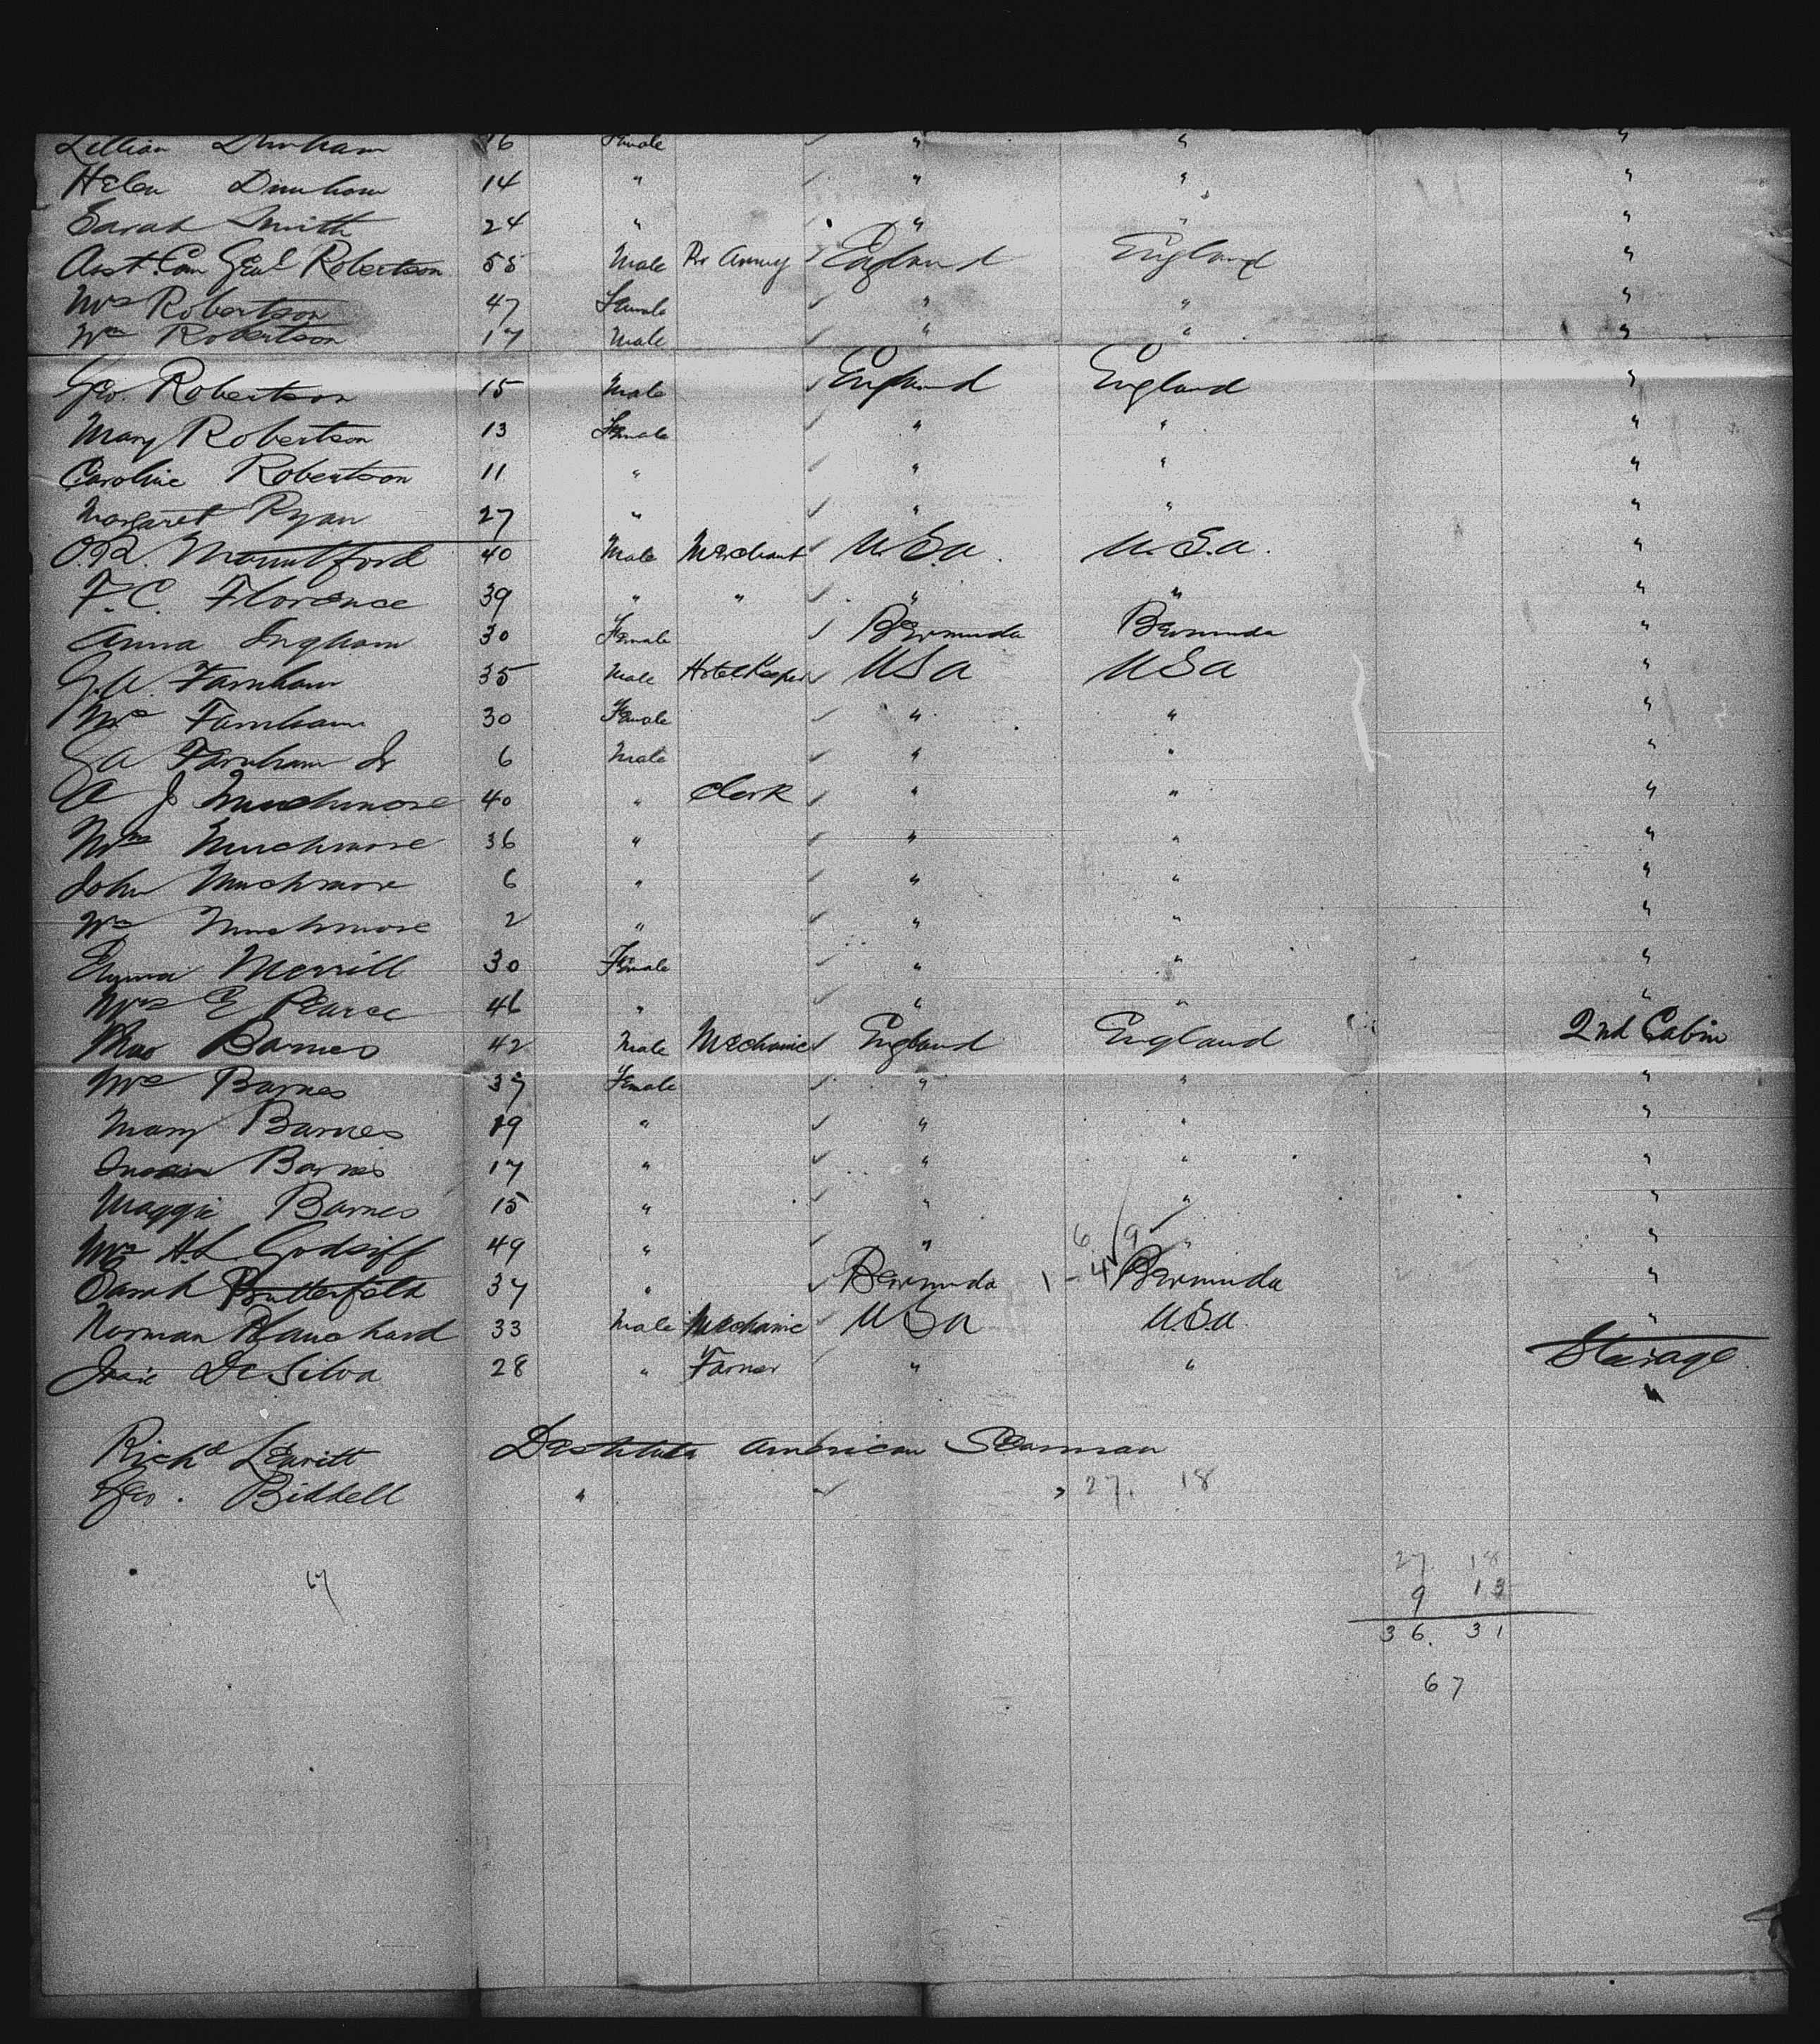 Lillian Dunham 16 Female " " "
Helen Dunham 14 " " " "
Sarah Smith 24 " " " "
Asst Com Genl Robertson 55 Male Army England England "
Mrs Robertson 47 Female " " "
Wm Robertson 17 Male " " "
Geo. Robertson 15 Male England England "
Mary Robertson 13 Female " " "
Caroline Robertson 11 " " " "
Margaret Ryan 27 " " " "
O.R. Mountford 40 Male Merchant U.S.a. U.S.a. "
F.C. Florence 39 " " " " "
Anna Ingham 30 Female Bermuda Bermuda "
G.A. Farnham 35 Male Hotel Keeper USa USa "
Mrs Farnham 30 Female " " "
G A Farnham Jr 6 Male " " "
A J Muchmore 40 " Clerk " " "
Mrs Muchmore 36 " " " "
John Muchmore 6 " " " "
Wm Muchmore 2 " " " "
Merrill 30 Female " " "
Mrs E Pearce 46 " " " "
Thos Barnes 42 Male Mechanic England England 2nd Cabin
Mrs Barnes 37 Female " " "
Mary Barnes 19 " " " "
Barnes 17 " " " "
Maggie Barnes 15 " " " "
6 9
Mrs H.L Godsiff 49 " " " "
Sarah Butterfeld 37 " Bermuda 1-4 Bermuda "
Norman Blanchard 33 Male Mechanic USa U.S.a. "
De Silva 28 " Farmer " " Sterage
"
Richd Leavitt Destitute American Seaman
Geo. Biddell " " 27. 18
27 18
67 9 13
36. 31
67